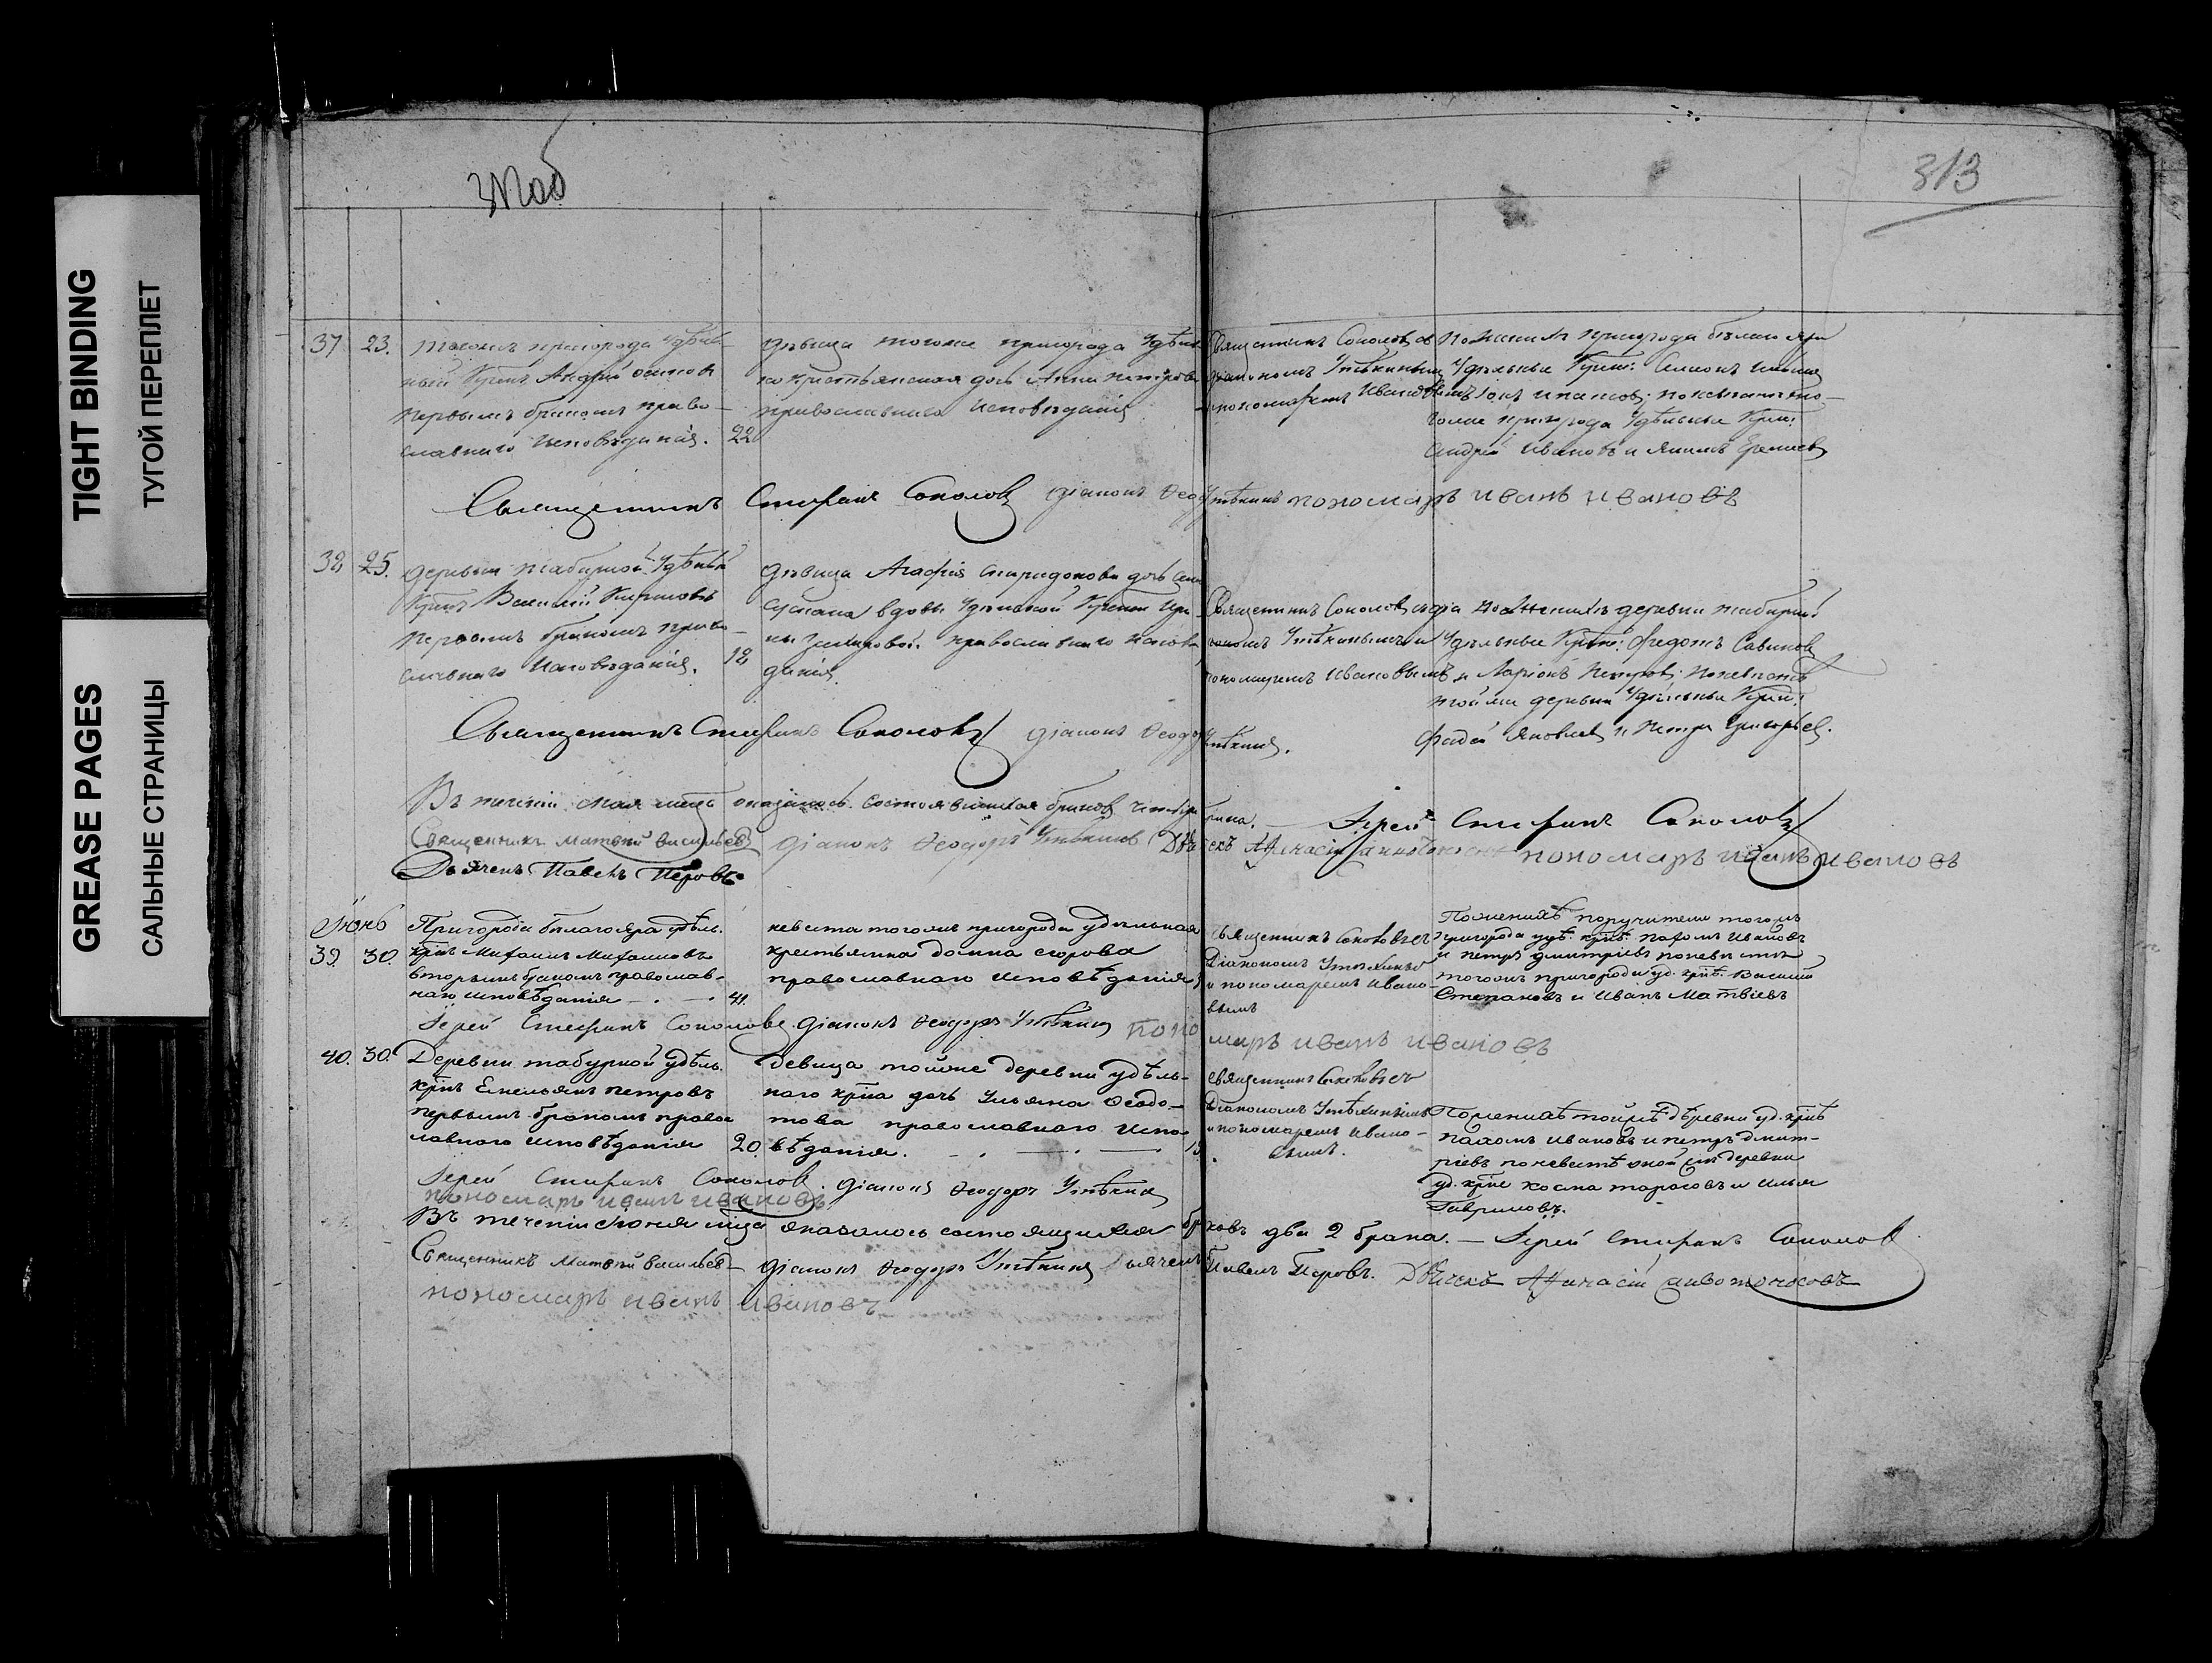 TIGHT BINDING
ТУГОЙ ПЕРЕПЛЕТ
GREASE PAGES
САЛЬНЫЕ СТРАНИЦЫ
313
37 23. тогожъ пригорода Удѣль-
ный Крнъ Андрей Осиповъ
первымъ бракомъ право-
славнаго исповѣданія. 22
дѣвица тогоже пригорода Удѣль
крестьянская дочь Анна Петрова
православнаго исповѣданія
Священникъ Соколовъ съ
діакономъ Утѣхинымъ
пономаремъ Ивановымъ
По женихѣ пригорода бѣлаго яра
Удѣльные Крнѣ:
пригорода Удѣльные Крнѣ:
Андрей Ивановъ и Якимъ Еремѣевъ
Священникъ Стефанъ Соколовъ діаконъ Ѳеодоръ Утѣхинъ пономарь иванъ ивановъ
38 25. деревни табурной Удѣльный
Крнъ Василій Кириловъ
первымъ бракомъ право-
славнаго исповѣданія. 18
дѣвица Агафія Спиридонова дочь
вдовы Удѣльной
православнаго исповѣ
данія
Священникъ Соколовъ съ діа
кономъ Утѣхинымъ и
пономаремъ Ивановымъ
По женихѣ деревни табурной
Удѣльные Крнѣ: Федотъ Савиновъ
и Ларіонъ Петровъ: По невѣстѣ
той же деревни Удѣльные Крнѣ:
Фадей Яковлевъ и Петръ Григорьевъ.
Священникъ Стефанъ Соколовъ діаконъ Ѳеодоръ Утѣхинъ.
Въ теченіи мая мѣсяца оказалось состоявшихся браковъ четыре брака. — Іерей Стефанъ Соколовъ
Священникъ Матвѣй Васильевъ діаконъ Ѳеодоръ Утѣхинъ Дьячекъ Афанасій пономарь иванъ ивановъ
Дьячекъ Павелъ Перовъ
Іюнь
39. 30. Пригорода бѣлаго яра удѣль.
крнъ Михаилъ Михаиловъ
вторымъ бракомъ православ-
наго исповѣданія — . — . 41.
невеста тогожъ пригорода удѣльная
крестьянка домна егорова
православнаго исповѣданія
священникъ Соколовъ съ
Діакономъ Утѣхинымъ
и пономаремъ Ивано-
вымъ
По женихѣ поручители тогожъ
пригорода удѣ. крнѣ. Пахомъ Ивановъ
и петръ дмитріевъ по невѣстѣ
тогожъ пригорода уд. крнѣ. Василій
Степановъ и Иванъ Матвіевъ
Іерей Стефанъ Соколовъ. діаконъ Ѳеодоръ Утѣхинъ поно
марь иванъ ивановъ
40. 30. Деревни табурной удѣль.
крнъ Емельянъ петровъ
первымъ бракомъ правос
лавнаго исповѣданія 20.
девица тойже деревни удѣль-
наго крна дочь Ульяна Ѳедо-
това православнаго испо-
вѣданія.
священникъ Соколовъ съ
Діакономъ Утѣхинымъ
и пономаремъ Ивано-
вымъ.
По женихѣ тойжъ деревни уд. крнѣ
пахомъ ивановъ и петръ дмит-
ріевъ по невестѣ деревни
уд. крне косма тарасовъ и илья
Гавриловъ.
Іерей Стефанъ Соколовъ. діаконъ Ѳеодоръ Утѣхинъ
пономарь иванъ ивановъ
Въ теченіи Іюня мца оказалось состоящихся браковъ два 2 брака. — Іерей Стефанъ Соколовъ
Священникъ Матвей Васильевъ — діаконъ Ѳеодоръ Утѣхинъ Дьячекъ Павелъ Перовъ. Дьячекъ Афанасій
пономарь иванъ ивановъ